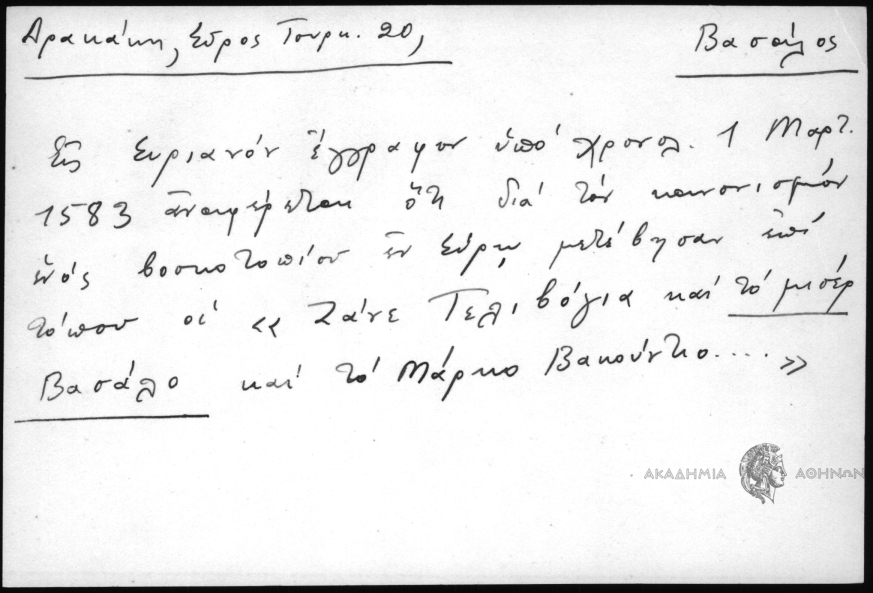 Δρακάκη, Σῦρος Τουρκ. 20,
Βασάλος
Εἰς Συριανόν ἔγγραφον ὑπό χρονολ. 1 Μαρτ.
1583 ἀναφέρεται ὅτι διά τόν κανονισμόν
ἑνός βοσκοτοπίου ἐν Σύρῳ, μετέβησαν ἐπί
τόπου οἱ « Ζάνε Τελιβόγια καί τό μισέρ
Βασάλο καί τό Μάρκο Βακόντιο.... »
ΑΚΑΔΗΜΙΑ ΑΘΗΝΩΝ